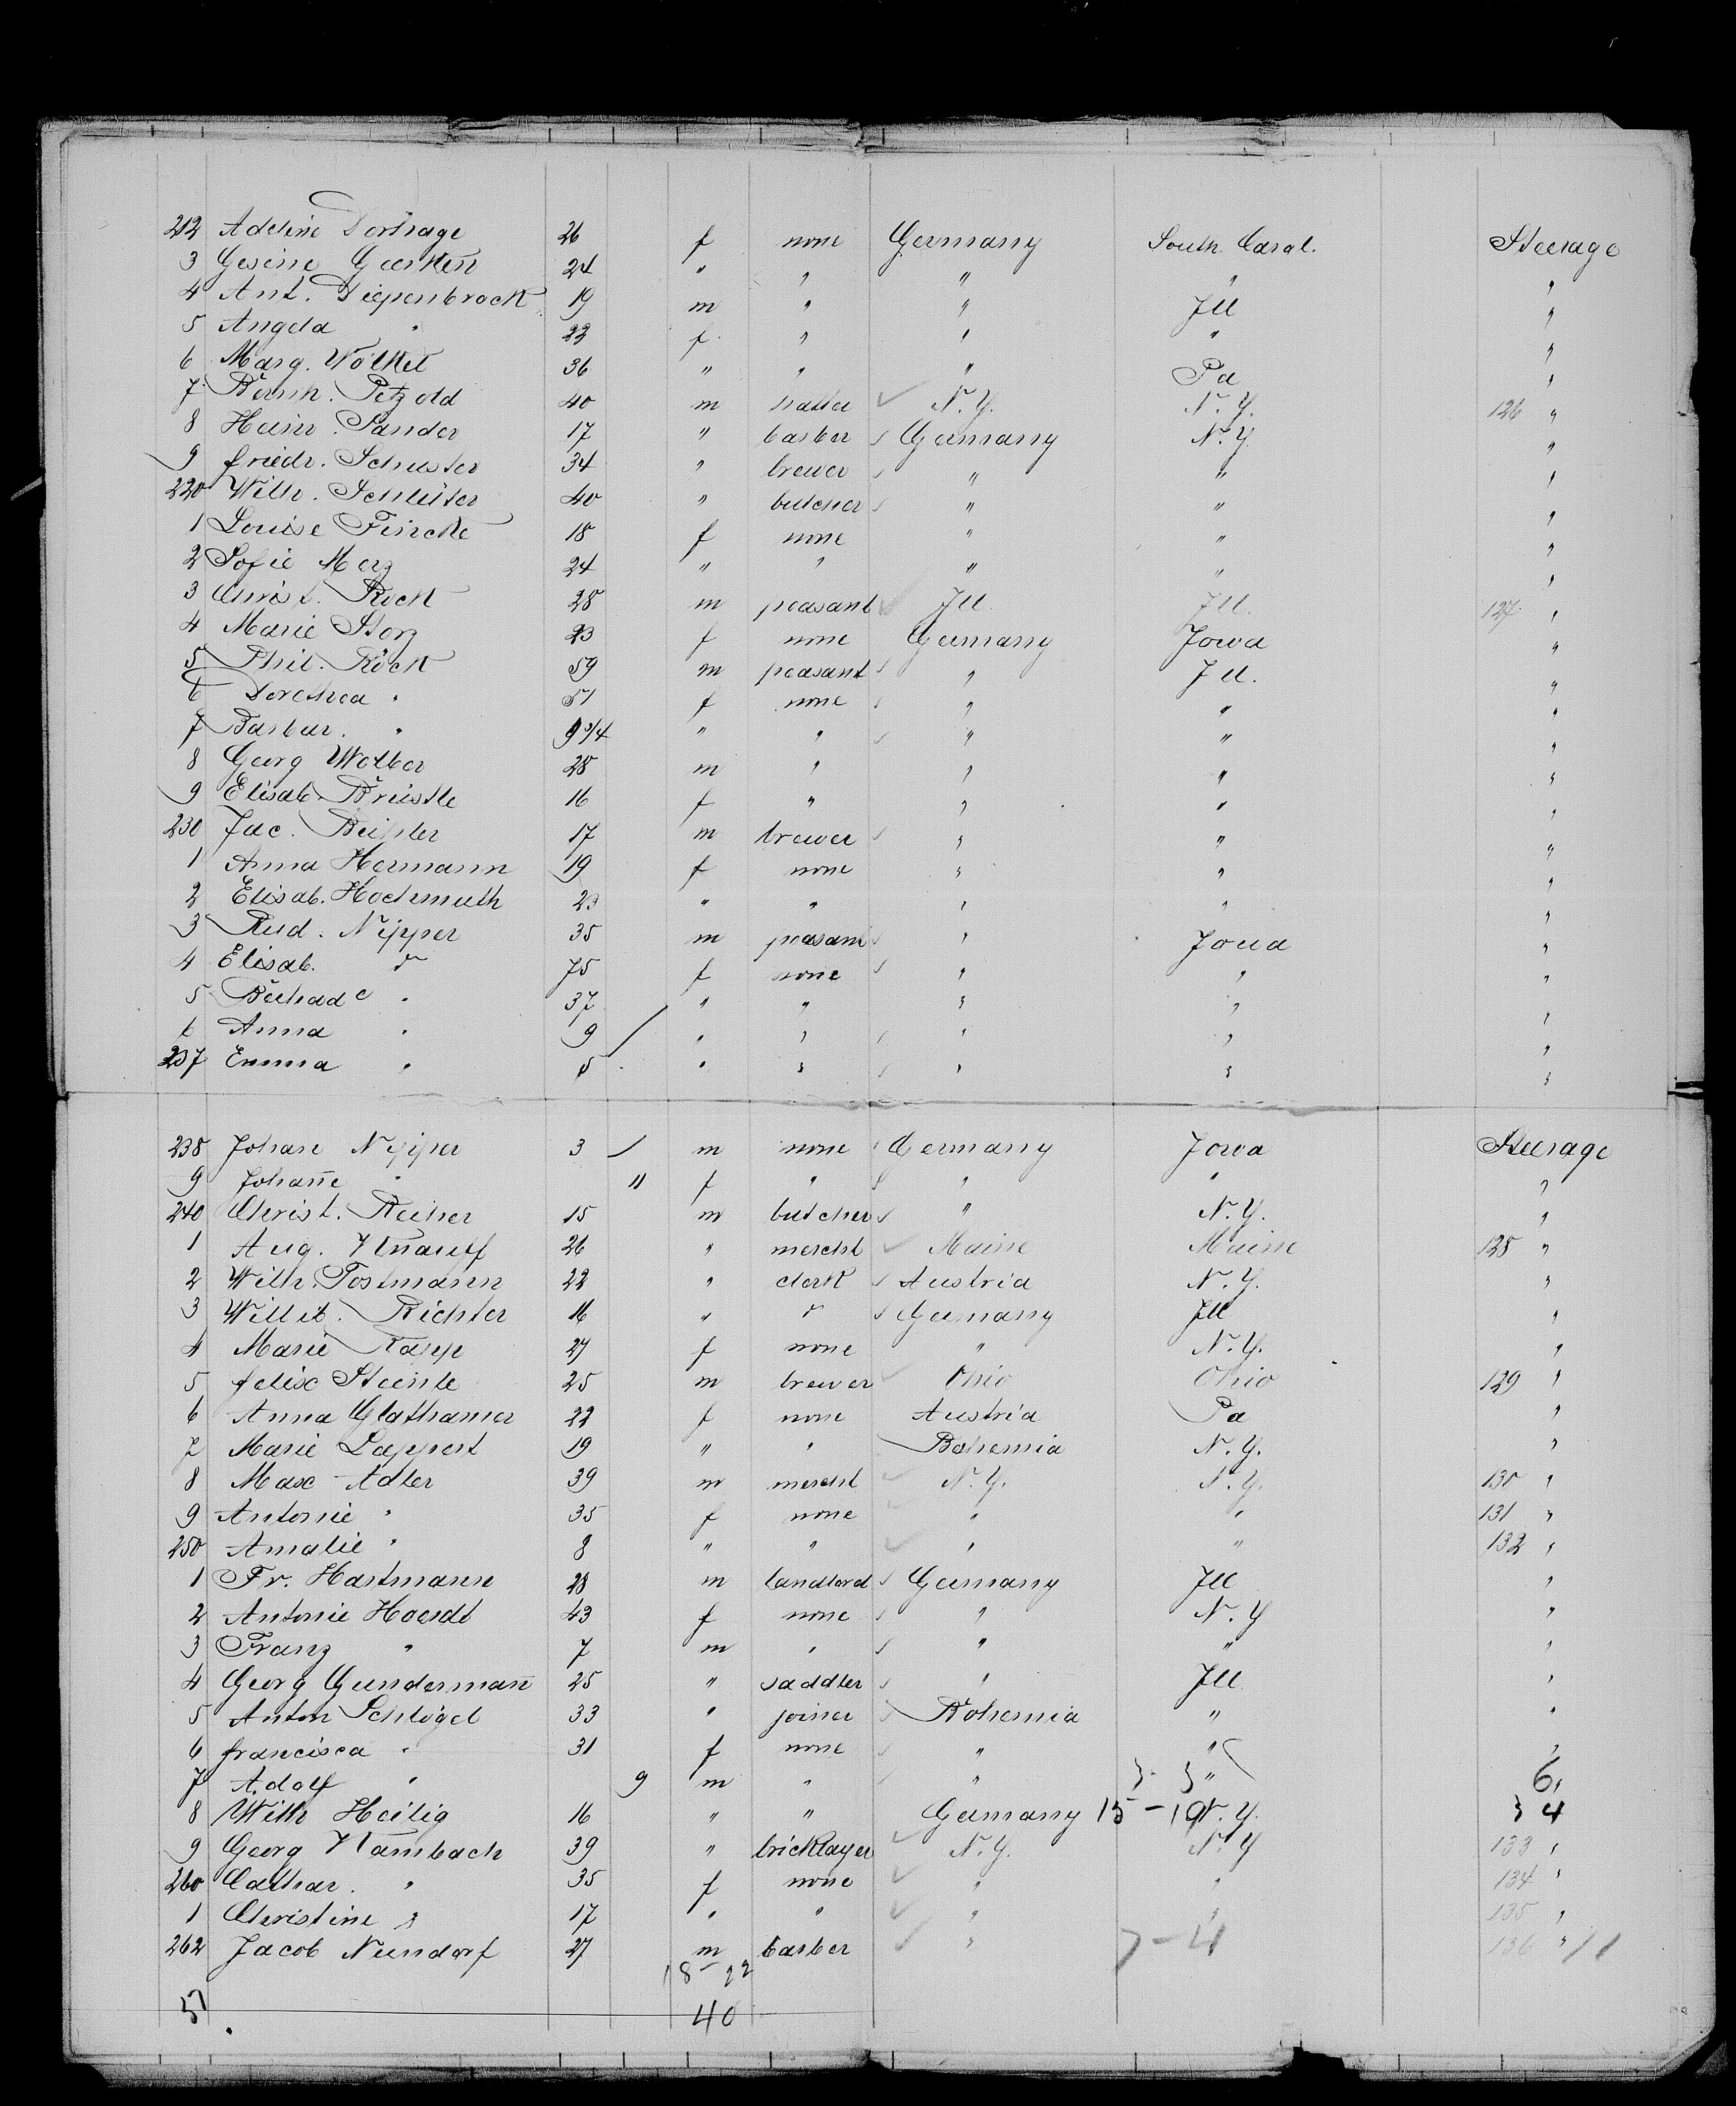 212 Adeline Dorhage 26 f none Germany South Carol. Steerage
3 Gesine Gerken 24 " " " " "
4 Ant. Diepenbrock 19 m " " Ill "
5 Angela " 22 f. " " " "
6 Marg. Völkel 36 " " " Pa "
7 Bernh. Petzold 40 m hatter N.Y. N.Y. 126 "
8 Heinr. Sander 17 " barber Germany N.Y. "
9 Friedr. Schuster 34 " brewer " " "
220 Wilh. Schlüter 40 " butcher " " "
1 Louise Fincke 18 f none " " "
2 Sofie Merz 24 " " " " "
3 Christ. Röck 28 m peasant Ill Ill. 127 "
4 Marie Storz 23 f none Germany Iowa "
5 Phil. Röck 59 m peasant " Ill. "
6 Dorothea " 51 f none " " "
7 Barbar. " 9 3/4 " " " " "
8 Georg Wolber 28 m " " " "
9 Elisab. Brüstle 16 f " " " "
230 Jac. 17 m brewer " " "
1 Anna Hermann 19 f none " " "
2 Elisab. Hochmuth 23 " " " " "
3 Rud. Nipper 35 m peasant " Iowa "
4 Elisab. " 75 f none " " "
5 " 37 " " " " "
6 Anna " 9 / " " " " "
237 Emma " 5 " " " " "
238 Johan Nipper 3 / m none Germany Iowa Steerage
9 Johanne " 11 f " " " "
240 Christ. Reiher 15 m butcher " N.Y. "
1 Aug. Knauff 26 " mercht Maine Maine 128 "
2 Wilh. Tostmann 22 " clerk Austria N.Y. "
3 Willib. Richter 16 " " Germany Ill "
4 Marie Rapp 27 f none " N.Y. "
5 Felix Steinle 25 m brewer Ohio Ohio 129 "
6 Anna Glathamer 22 f none Austria Pa "
7 Marie Lappert 19 " " Bohemia N.Y. "
8 Max Adler 39 m mercht N.Y. N.Y. 130 "
9 Antonie " 35 f none " " 131 "
250 Amalie " 8 " " " " 132 "
1 Fr. Hartmann 28 m landlord Germany Ill "
2 Antonie Hoerdt 43 f none " N.Y "
3 Franz " 7 m " " " "
4 Georg Gundermann 25 " saddler " Ill "
5 Anton Schlögel 33 " joiner Bohemia " "
6 Francisca " 31 f none " " "
7 Adolf " 9 m " " 3 - 3 " 6 "
8 Wilh Heilig 16 " " Germany 15 - 19 N.Y. 3 4
9 Georg Kambach 39 " bricklayer N.Y. N.Y 133 "
260 Cathar. " 35 f none " " 134 "
1 Christine " 17 " " " " 135 "
262 Jacob Nundorf 27 m barber " 7 - 4 136 " 11
18 - 22
37 40